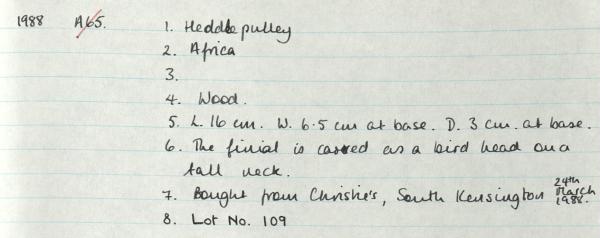 1988 A65. 1. Heddle pulley
2. Africa
3.
4. Wood.
5. L. 16 cm. W. 6.5 cm at base. D. 3 cm. at base.
6. The finial is carved as a bird head on a
tall neck.
7. Bought from Christie's, South Kensington 24th March 1988.
8. Lot No. 109